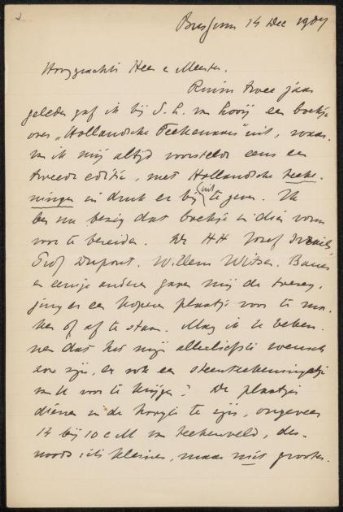 Bussum 14 Dec 1907
Hooggeachte Heer & Meester.
Ruim twee jaar
geleden gaf ik bij S. L. van Looij een boekje
over „Hollandsche Teekenaars" uit, waar-
van ik mij altijd voorstelde eens een
tweede editie, met Hollandsche teeke-
ningen in druk er bij uit te geven. Ik
ben nu bezig dat boekje in dien vorm
voor te bereiden. De HH Jozef Israëls,
Prof Dupont, Willem Witsen, Bauer
en eenige anderen gaven mij de toezeg-
ging er een koperen plaatje voor te ma-
ken of af te staan. Mag ik U beken-
nen dat het mijn allerliefste wensch
zou zijn, er ook een steenteekeningetje
van U voor te krijgen? De plaatjes
dienen in de hoogte te zijn, ongeveer
14 bij 10 cM van teekenveld, des-
noods iets kleiner, maar niet grooter.